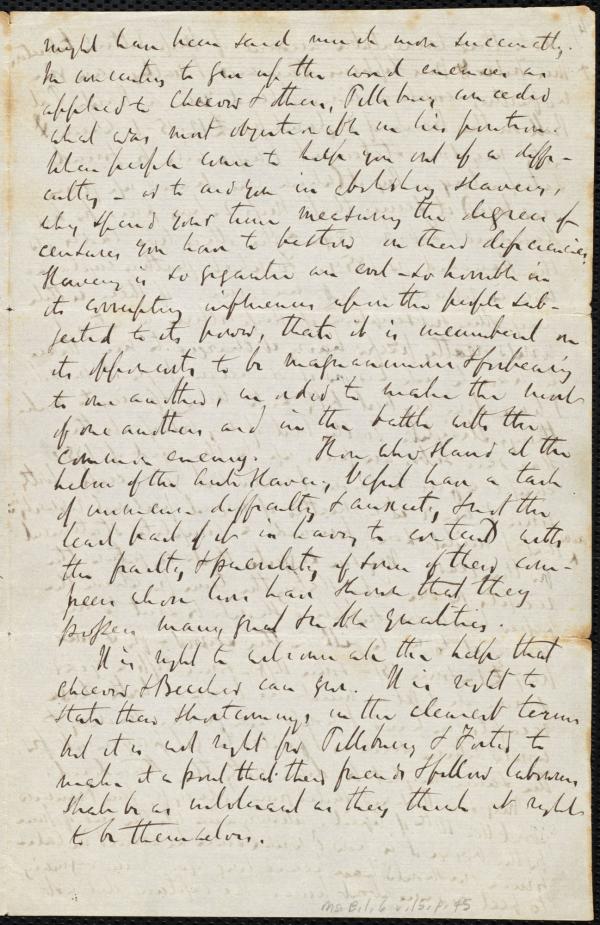 might have been said much more succinctly.
In consenting to give up the word enemies as
applied to Cheever & others, Pillsbury conceded
what was most objectionable in his position.
When people come to help you out of a diffi-
culty – or to aid you in abolishing slavery,
why spend your time measuring the degree of
censures you have to bestow on their deficiencies.
Slavery is so gigantic an evil – so horrible in
its corrupting influences upon the people sub-
jected to its power, that it is incumbent on
its opponents to be magnanimous & forbearing
to one another, in order to make the most
of one anothers aid in the battle with the
common enemy. Those who stand at the
helm of the Anti Slavery Vessel have a task
of immense difficulty & anxiety, & not the
least part of it is having to contend with
the frailty & peculiarity of some of their com-
peers whose lives have shown that they
possess many great & noble qualities.
It is right to welcome all the help that
Cheever & Beecher can give. It is right to
state their shortcomings in the clearest terms
but it is not right for Pillsbury & Foster to
make it a point that their friends & fellow labourers
shall be as intolerant as they think it right
to be themselves.
Ms. B.1.6 v.15, p.45